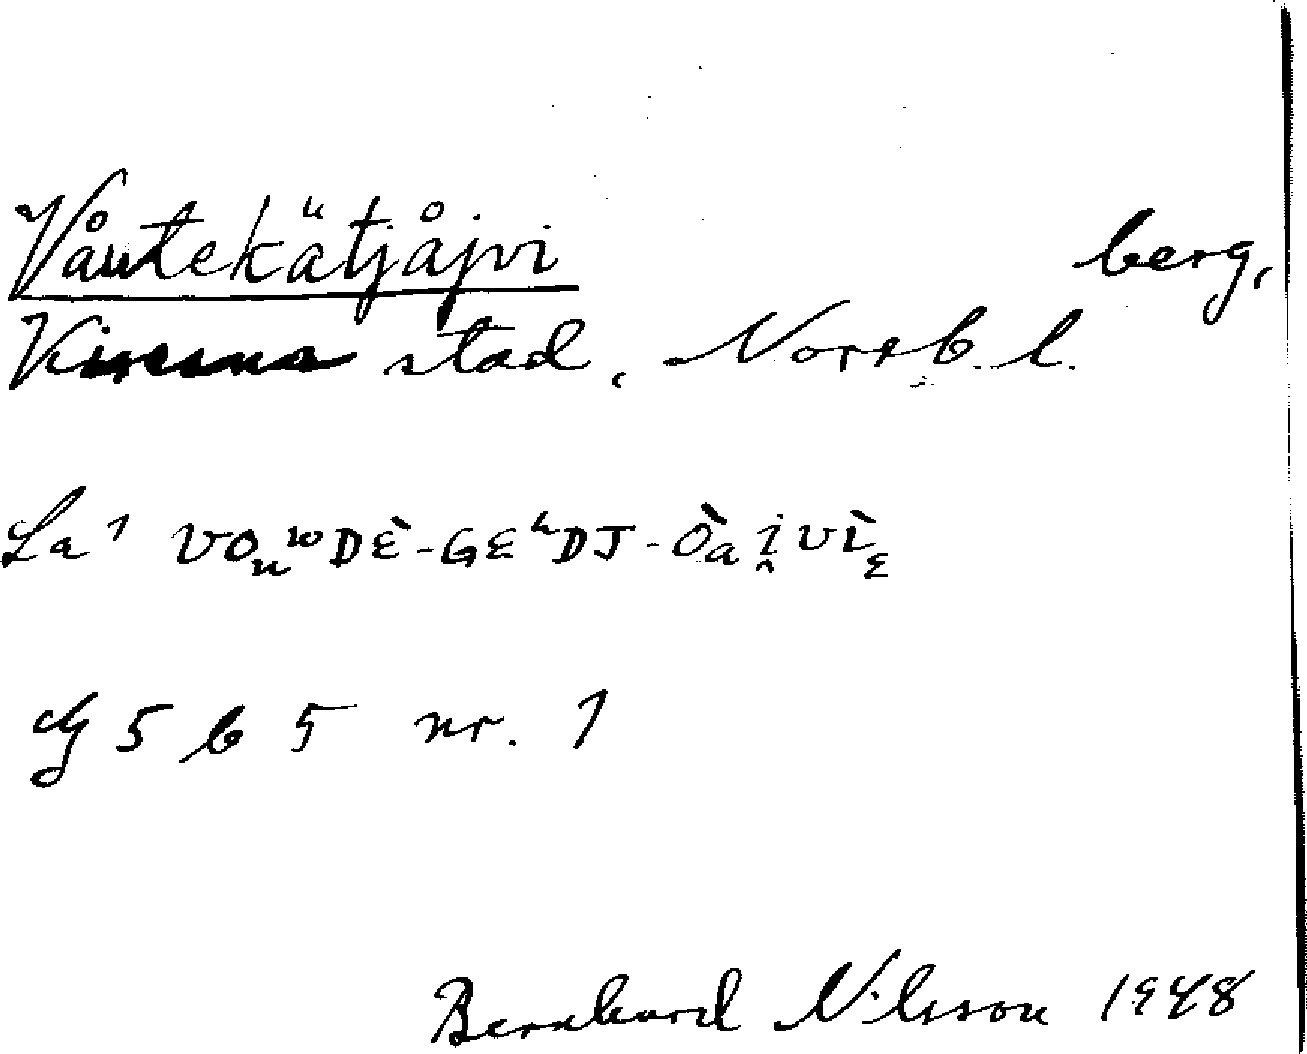 Våutekätjåjvi berg,
Kiruna stad, Norrb. l.
La 1 VOᵤ¹⁰DÈ-GEʰDJ-ÒₐI̯VÌ
G 5 b 5 nr. 1
Bernhard Nilsson 1948